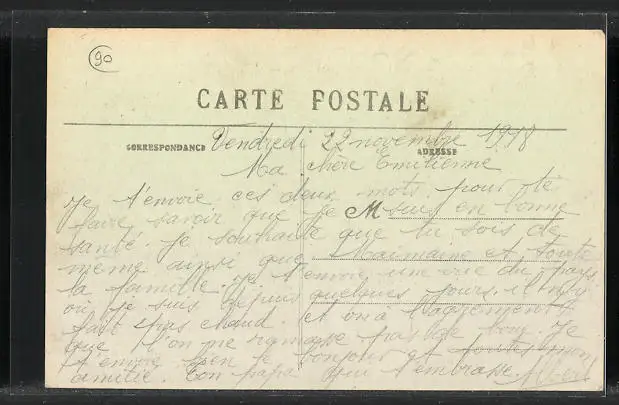 90
CARTE POSTALE
CORRESPONDANCE
ADRESSE
Vendredi 22 novembre 1918
Ma chère Emilienne
Je t'envoie ces deux mots pour te
faire savoir que je suis en bonne
M
santé. Je souhaite que tu sois de
même ainsi que et toute
la famille. Je t'envoie une vue du pays
où je suis depuis quelques jours. il n'y
fait pas chaud. et on a
que l'on ne ramasse pas de Je
t'envoie bien le bonjour et
amitié. Ton papa qui t'embrasse Albert